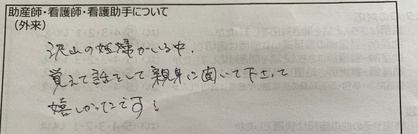 助産師・看護師・看護助手について
(外来)
沢山の妊婦がいる中、
覚えて話をして親身に聞いて下さって
嬉しかったです!